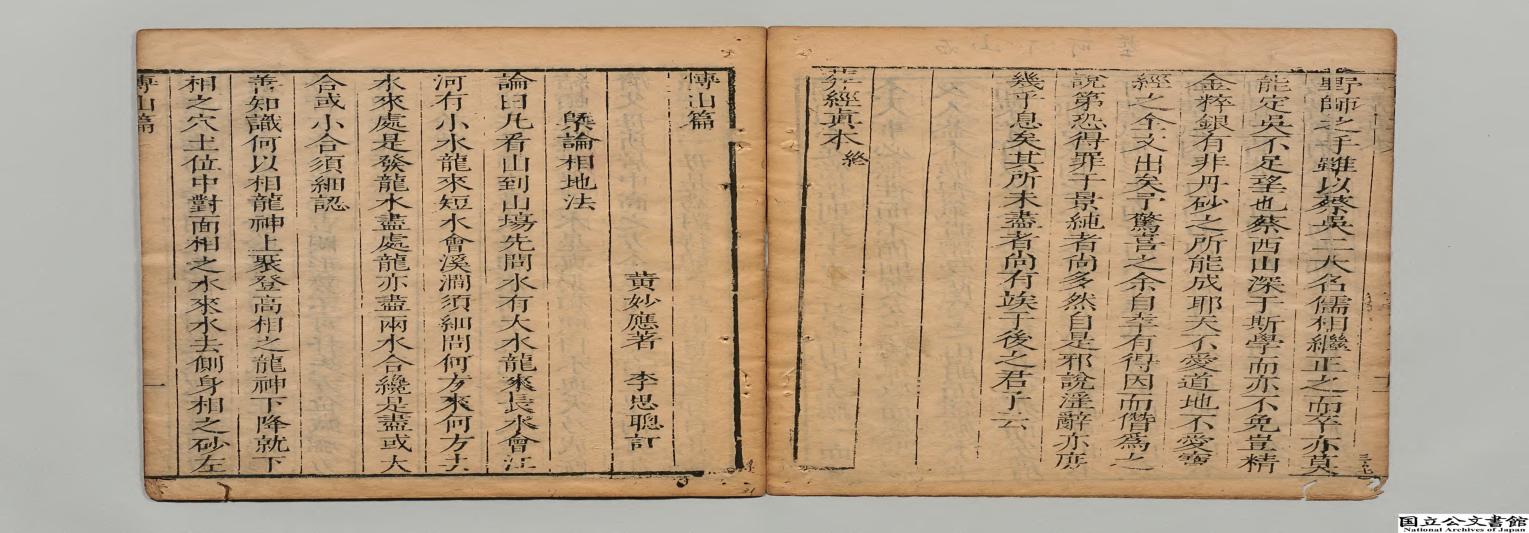 野師之手雖以蔡吳二大名儒相繼正之而卒亦莫
能定吳不足筭也蔡西山深于斯學而亦不免豈精
金粹銀有非丹砂之所能成耶天不愛道地不愛寶
經之全文出矣予驚喜之余自幸有得因而僭爲之
說第恐得罪于景純者尚多然自是邪說淫辭亦庶
幾乎息矣其所未盡者尚有竢于後之君子云
葬經眞本 終
博山篇
黃妙應著 李思聰訂
槩論相地法
論曰凡看山到山場先問水有大水龍來長水會江
河有小水龍來短水會溪澗須細問何方來何方去
水來處是發龍水盡處龍亦盡兩水合纔是盡或大
合或小合須細認
善知識何以相龍神上聚登高相之龍神下降就下
相之穴土位中對面相之水來水去側身相之砂左
博山篇
一
国立公文書館
National Archives of Japan